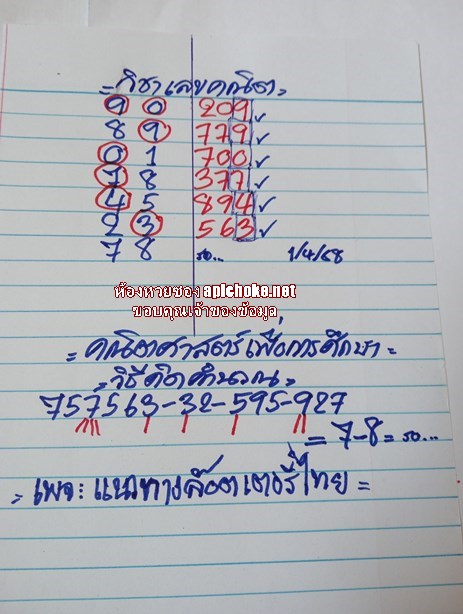 = วิชาเลขคณิต =
9 0 209 ✓
8 9 779 ✓
0 1 700 ✓
7 8 377 ✓
4 5 894 ✓
2 3 563 ✓
7 8 รอ... 1/4/68
ห้องหวยของapichoke.net
ขอบคุณเจ้าของข้อมูล
= คณิตศาสตร์เพื่อการศึกษา =
= วิธีคิดคำนวณ =
757563-32-595-927
= 7-8 = รอ...
= เพจ: แนวทางล๊อตเตอรี่ไทย =